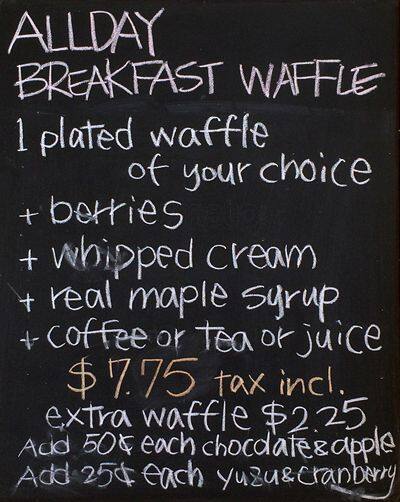 ALLDAY
BREAKFAST WAFFLE
1 plated waffle
of your choice
+ berries
+ whipped cream
+ real maple syrup
+ coffee or tea or juice
$7.75 tax incl.
extra waffle $2.25
Add 50¢ each chocolate & apple
Add 25¢ each yuzu & cranberry